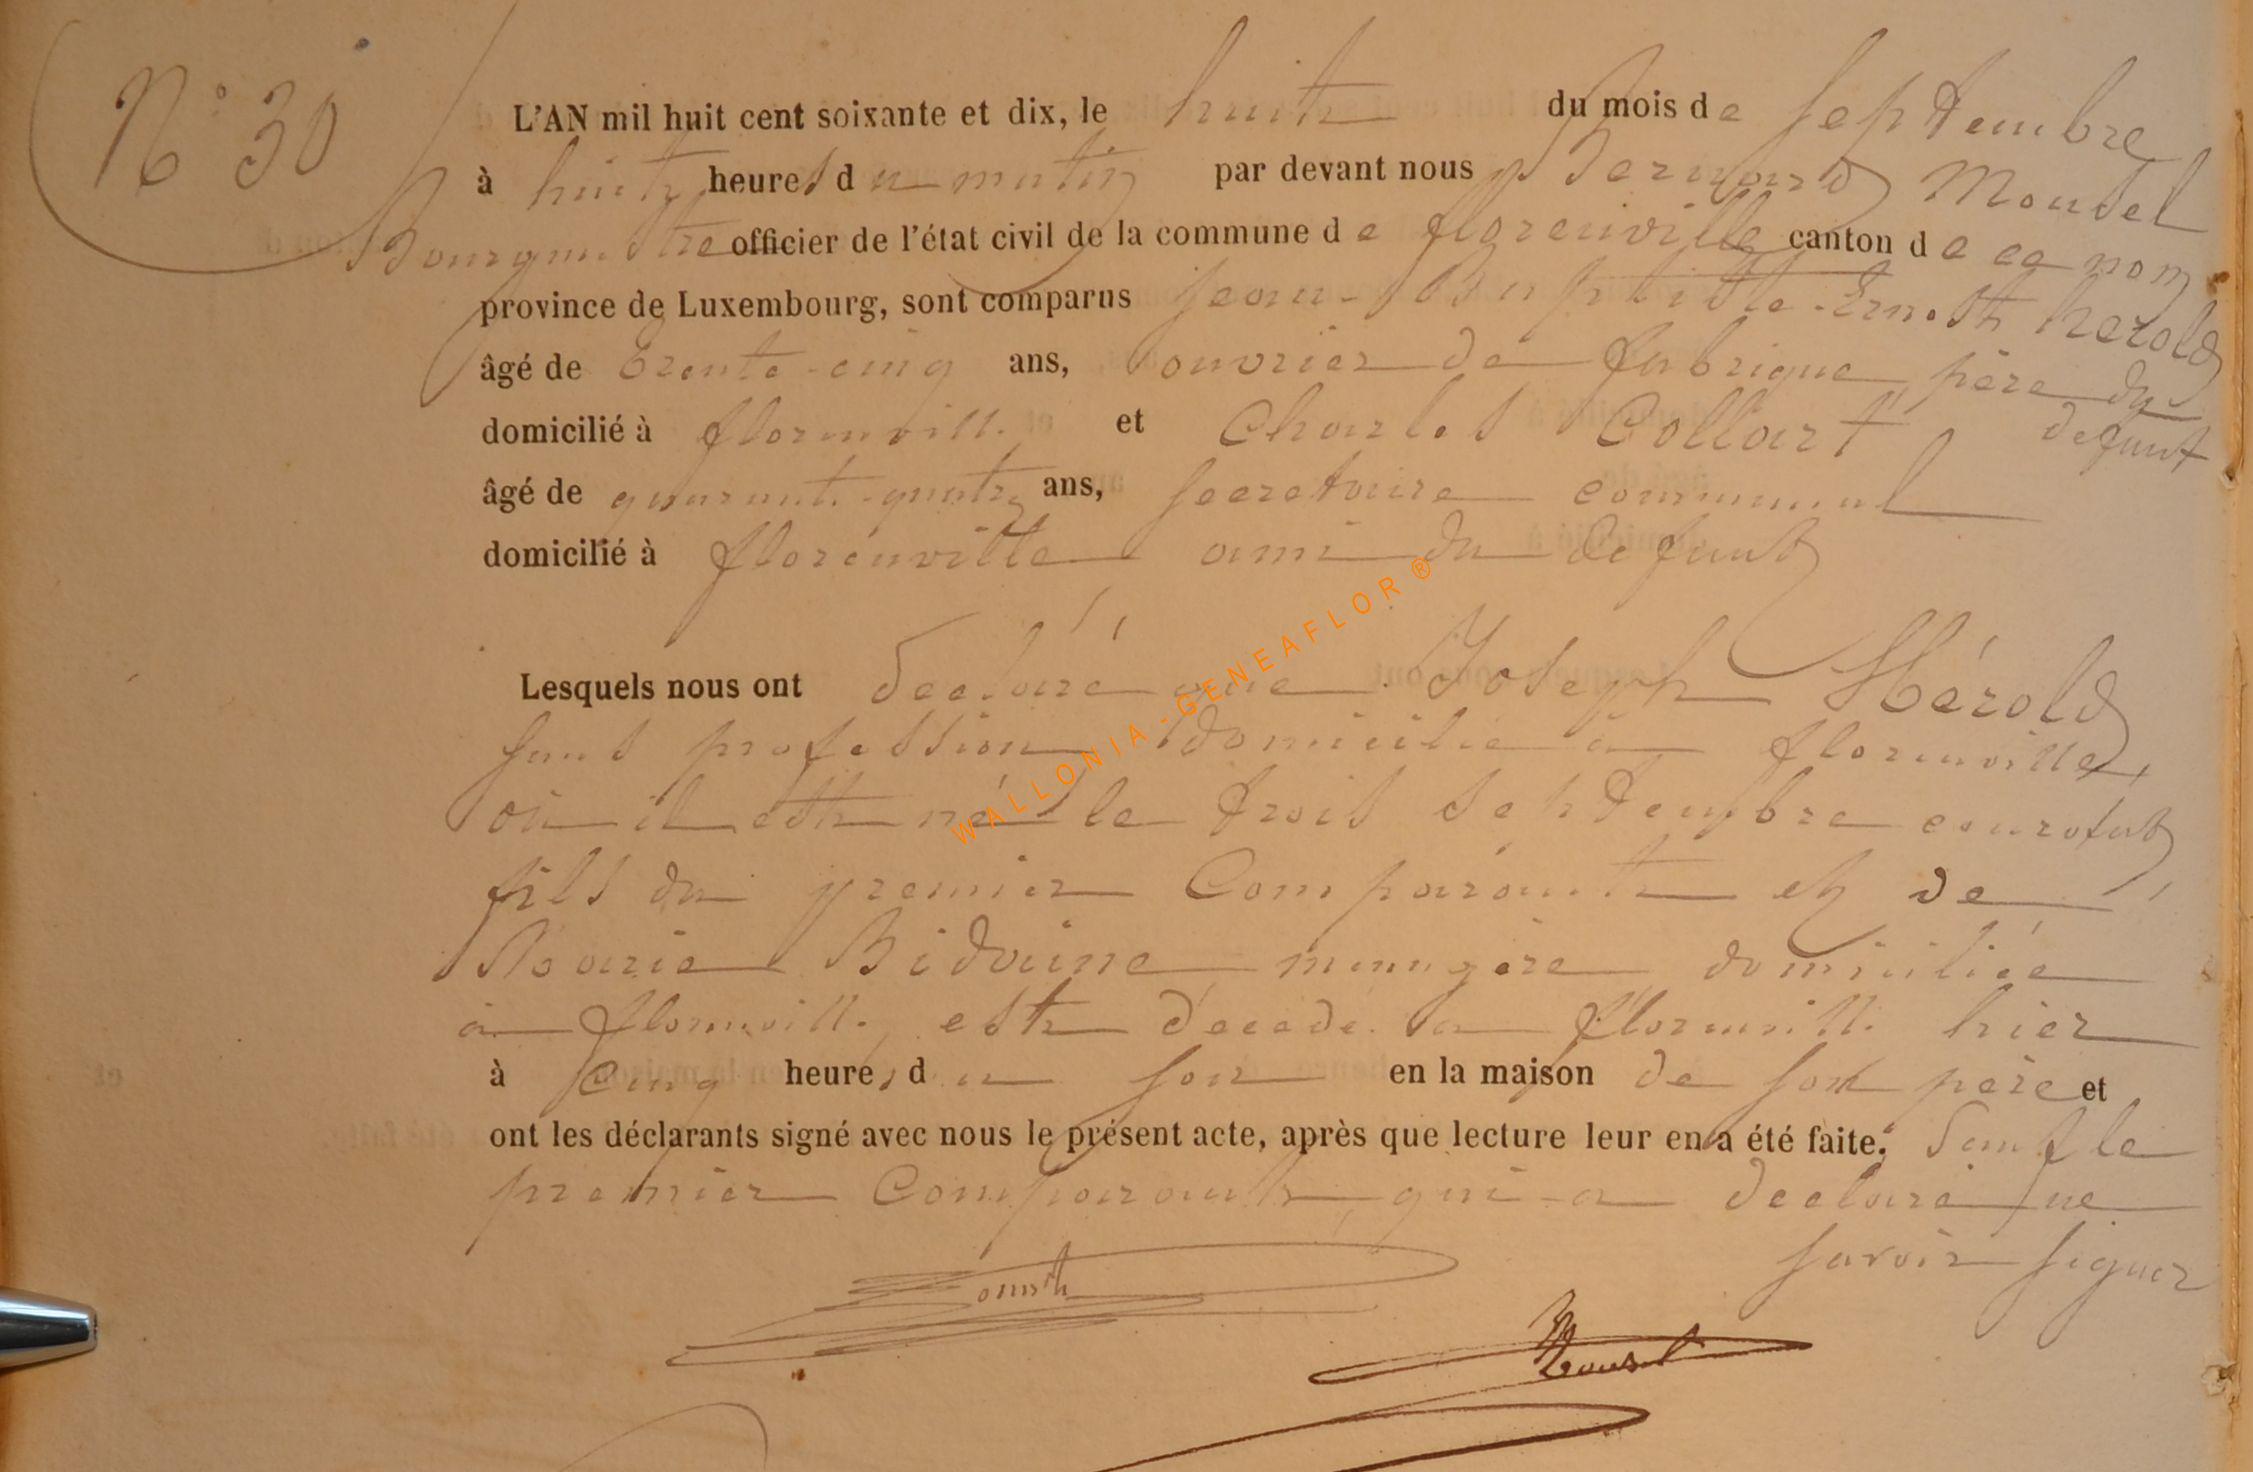 N° 30
L'AN mil huit cent soixante et dix, le huit du mois de septembre
à huit heures du matin par devant nous Bernard Mousel
Bourgmestre officier de l'état civil de la commune de florenville canton de ce nom
province de Luxembourg, sont comparus jean-Baptiste-Ernest herold
âgé de trente-cinq ans, ouvrier de fabrique père du
défunt
domicilié à florenville et Charles Collart
âgé de quarante-quatre ans, secretaire communal
domicilié à florenville ami du défunt
Lesquels nous ont déclaré que Joseph Hérold
sans profession domicilié à florenville,
où il est né le trois septembre courant
fils du premier Comparant et de
Marie Bidaine ménagère domiciliée
à florenville, est décédé à florenville hier
à cinq heures du soir en la maison de son père et
ont les déclarants signé avec nous le présent acte, après que lecture leur en a été faite, Sauf le
premier Comparant qui a déclaré ne
savoir signer
Mousel
WALLONIA-GENEAFLOR ®